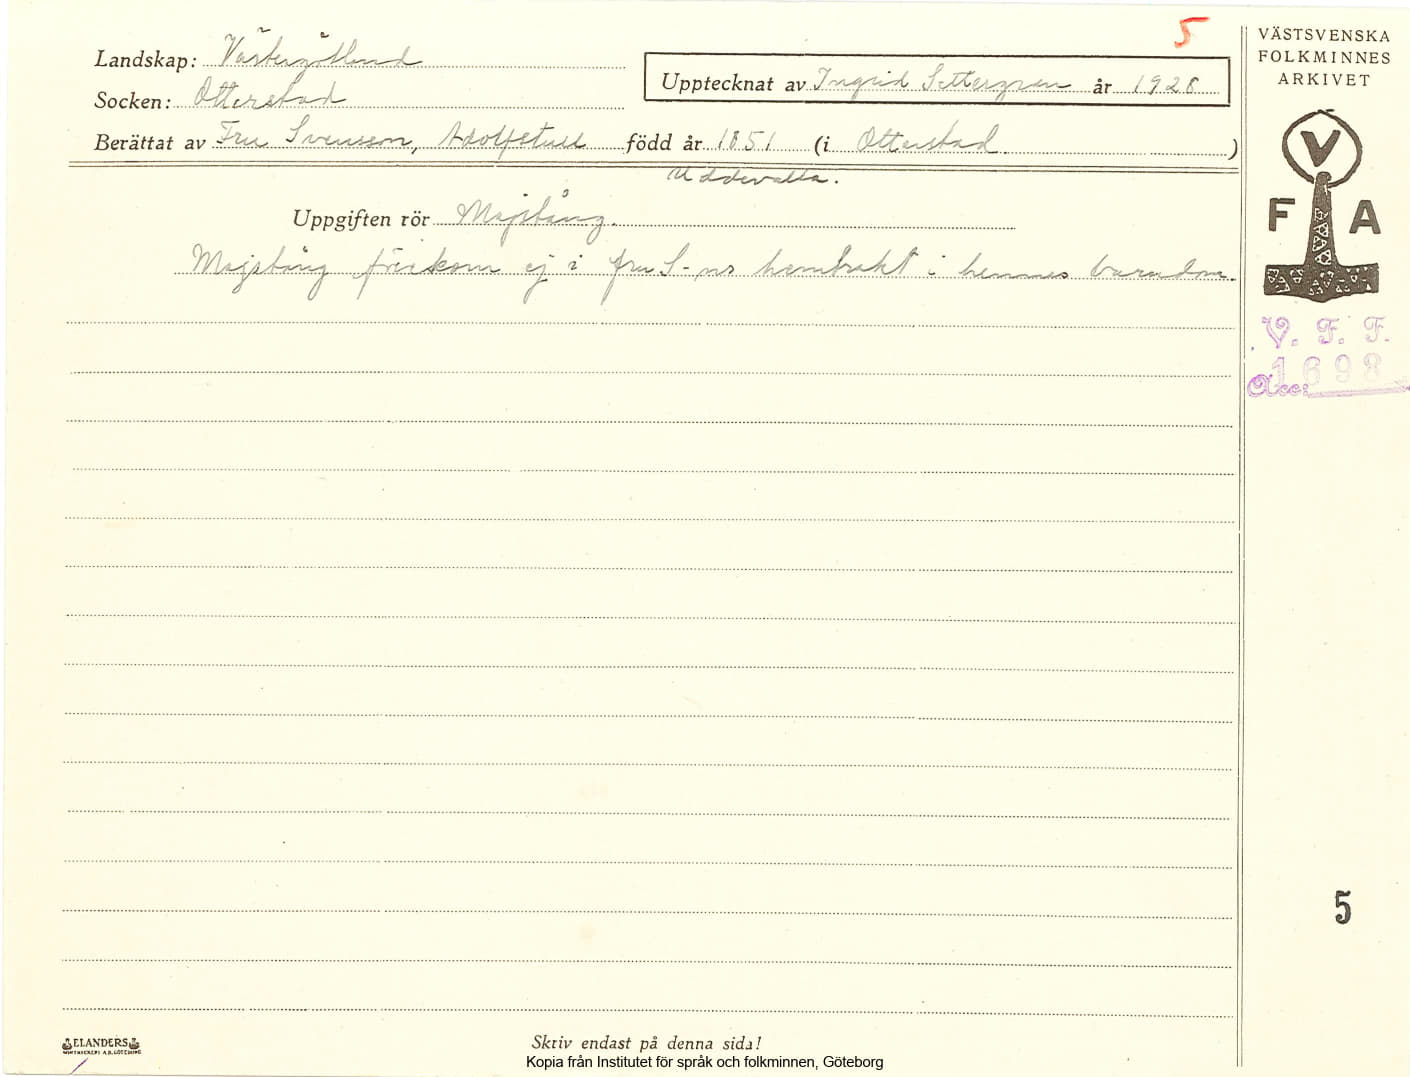 5
VÄSTSVENSKA
FOLKMINNES
ARKIVET
Landskap: Västergötland
Upptecknat av Ingrid Settergren år 1928
Socken: Otterstad
Berättat av Fru Svensson, Adolfstull född år 1851 (i Otterstad)
Uddevalla.
V
F A
Uppgiften rör Majstång.
Majstång förekom ej i fru S-ns hembrakt i hennes barndom.
V. F. F.
Acc: 1698
5
ELANDERS
Skriv endast på denna sida!
Kopia från Institutet för språk och folkminnen, Göteborg